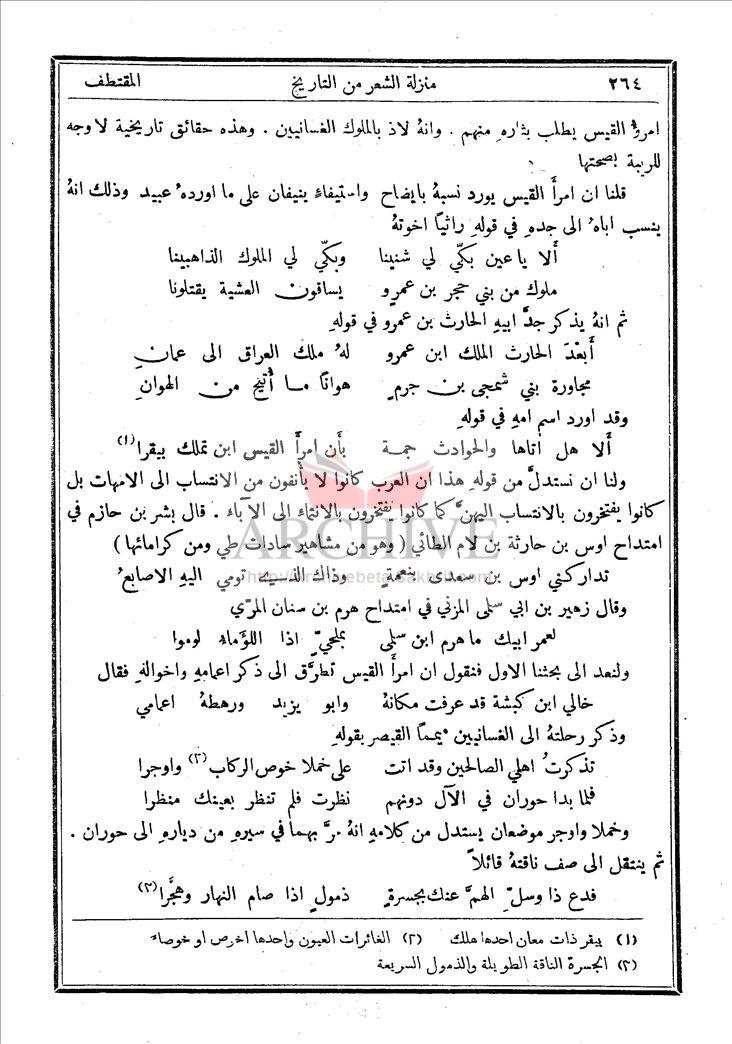 ٢٦٤ منزلة الشعر من التاريخ المقتطف
امرؤ القيس يطلب بثاره منهم . وانهُ لاذ بالملوك الغسانيين . وهذه حقائق تاريخية لا وجه
للريبة بصحتها
قلنا ان امرأَ القيس يورد نسبهُ بايضاح واستيفاءٍ ينيفان على ما اورده عبيد وذلك انهُ
ينسب اباه الى جده في قوله راثياً اخوتهُ
أَلا يا عين بكّي لي شنينا وبكّي لي الملوك الذاهبينا
ملوك من بني حجر بن عمرٍو يساقون العشية يقتلونا
ثم انهُ يذكر جدَّ ابيه الحارث بن عمرو في قولهِ
أَبعْدَ الحارث الملك ابن عمرو لهُ ملك العراق الى عمانِ
مجاورة بني شمجى بن جرمٍ هوانًا مـا أُتيح من الهوانِ
وقد اورد اسم امهِ في قولهِ
أَلا هل اتاها والحوادث جمـة بأَن امرأَ القيس ابن تملك بيقرا(١)
ولنا ان نستدلَّ من قوله هذا ان العرب كانوا لا يأنفون من الانتساب الى الامهات بل
كانوا يفتخرون بالانتساب اليهنَّ كما كانوا يفتخرون بالانتماء الى الآباء . قال بشر بن حازم في
امتداح اوس بن حارثة بن لام الطائي ( وهو من مشاهير سادات طي ومن كرامائها )
ARCHIVE
تداركني اوس بن سعدى بنعمةٍ وذاك الذسيے تومي اليه الاصابع
وقال زهير بن ابي سلمى المزني في امتداح هرم بن سنان المرّي
لعمر ابيك ما هرم ابن سلمى بملحيٍّ اذا اللؤماءُ ليموا
ولنعد الى بحثنا الاول فنقول ان امرأَ القيس تطرَّق الى ذكر اعمامهِ واخوالهِ فقال
خالي ابن كبشة قد عرفت مكانهُ وابو يزيد ورهطهُ اعمامي
وذكر رحلتهُ الى الغسانيين ميممًا القيصر بقولهِ
تذكرتُ اهلي الصالحين وقد اتت على خملا خوص الركاب(٢) واوجرا
فلما بدا حوران في الآل دونهم نظرت فلم تنظر بعينك منظرا
وخملا واوجر موضعان يستدل من كلامهِ انهُ مرَّ بهما في سيرهِ من ديارهِ الى حوران .
ثم ينتقل الى صف ناقتهُ قائلاً
فدع ذا وسلِّ الهمَّ عنك بجسرةٍ ذمولٍ اذا صام النهار وهجَّرا(٣)
(١) بيقر ذات معان احدها هلك (٢) الغائرات العيون واحدها اخوص او خوصاء
(٣) الجسرة الناقة الطويلة والذمول السريعة